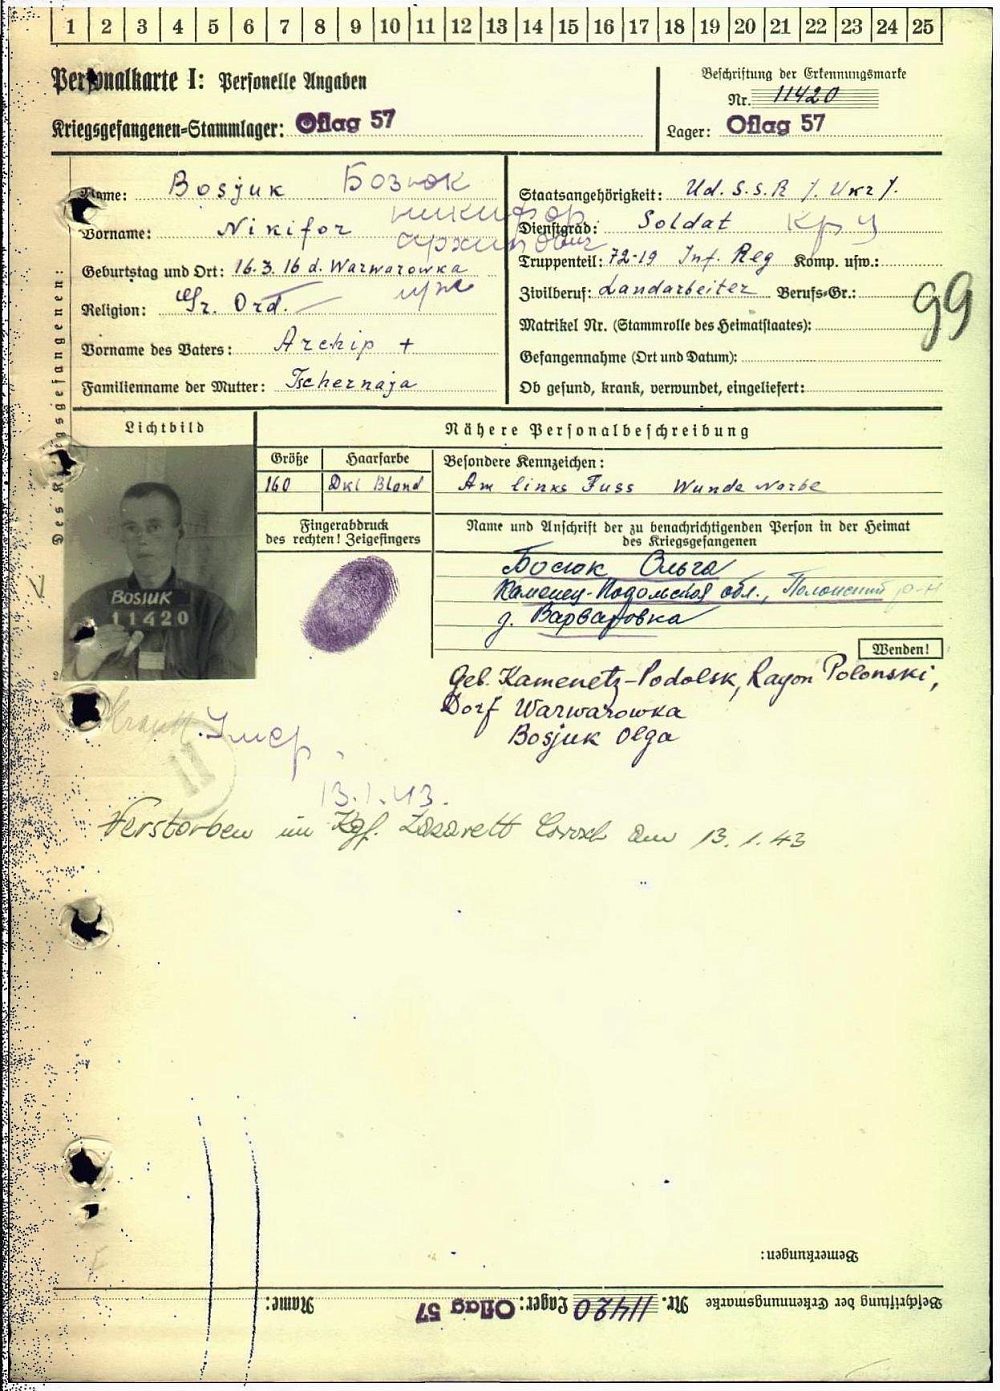 1 2 3 4 5 6 7 8 9 10 11 12 13 14 15 16 17 18 19 20 21 22 23 24 25
Personalkarte I: Personelle Angaben
Kriegsgefangenen-Stammlager: Oflag 57
Beschriftung der Erkennungsmarke
Nr. 11420
Lager: Oflag 57
Des Kriegsgefangenen:
Name: Bosjuk Бозюк
Vorname: Nikifor никифор
архипович
Geburtstag und Ort: 16.3.16 d. Warwarowka
Religion: Gr. Ord.
Vorname des Vaters: Archip +
Familienname der Mutter: Tschernaja
Staatsangehörigkeit: Ud. S.S.R /. Ukr /.
Dienstgrad: Soldat
Truppenteil: 72-19 Inf. Reg Komp. usw.:
Zivilberuf: Landarbeiter Berufs-Gr.:
99
Matrikel Nr. (Stammrolle des Heimatstaates):
Gefangennahme (Ort und Datum):
Ob gesund, krank, verwundet, eingeliefert:
Lichtbild
Nähere Personalbeschreibung
Größe Haarfarbe Besondere Kennzeichen:
160 Dkl Blond Am links Fuss Wunde Narbe
Fingerabdruck
des rechten! Zeigefingers
Name und Anschrift der zu benachrichtigenden Person in der Heimat
des Kriegsgefangenen
Босюк Ольга
Каменец-Подольская обл., Полонский р-н
д. Варваровка
BOSJUK
11420
Wenden!
Geb. Kamenetz-Podolsk, Rayon Polonski,
Dorf Warwarowka
Bosjuk Olga
Умер
11
13.1.43.
Verstorben im Kgf. Lazarett am 13.1.43
Bemerkungen:
Beschriftung der Erkennungsmarke Nr. 11420 Lager: Oflag 57 Name: